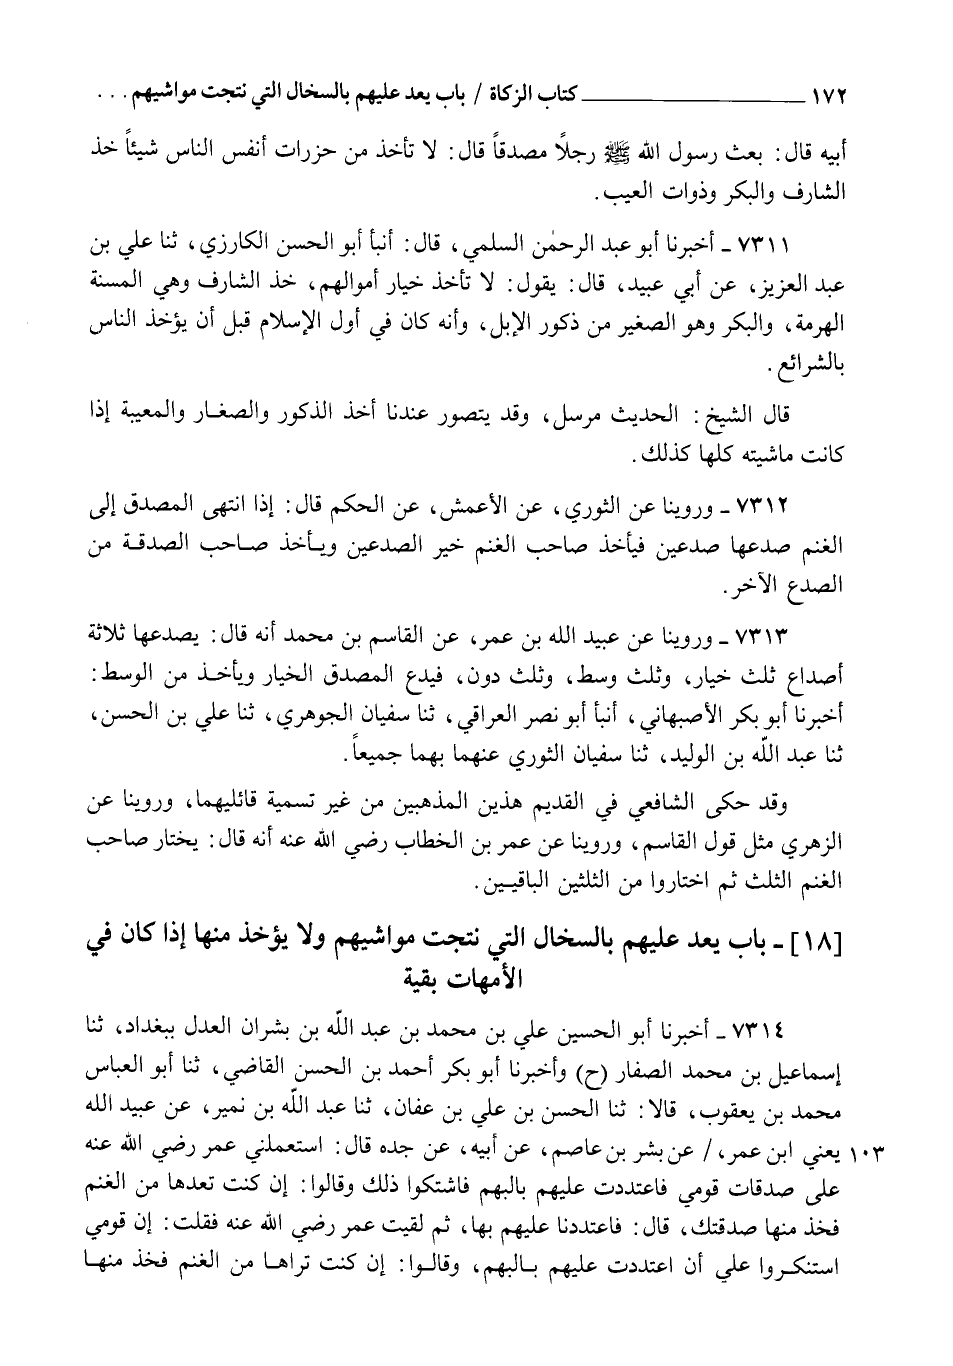 ١٧٢ ــــــــــــــــــــ كتاب الزكاة / باب يعد عليهم بالسخال التي نتجت مواشيهم . . .
أبيه قال: بعث رسول الله ﷺ رجلاً مصدقاً قال: لا تأخذ من حزرات أنفس الناس شيئاً خذ
الشارف والبكر وذوات العيب.
٧٣١١ ـ أخبرنا أبو عبد الرحمٰن السلمي، قال: أنبأ أبو الحسن الكارزي، ثنا علي بن
عبد العزيز، عن أبي عبيد، قال: يقول: لا تأخذ خيار أموالهم، خذ الشارف وهي المسنة
الهرمة، والبكر وهو الصغير من ذكور الإبل، وأنه كان في أول الإسلام قبل أن يؤخذ الناس
بالشرائع.
قال الشيخ: الحديث مرسل، وقد يتصور عندنا أخذ الذكور والصغار والمعيبة إذا
كانت ماشيته كلها كذلك.
٧٣١٢ ـ وروينا عن الثوري، عن الأعمش، عن الحكم قال: إذا انتهى المصدق إلى
الغنم صدعها صدعين فيأخذ صاحب الغنم خير الصدعين ويأخذ صاحب الصدقة من
الصدع الآخر.
٧٣١٣ ـ وروينا عن عبيد الله بن عمر، عن القاسم بن محمد أنه قال: يصدعها ثلاثة
أصداع ثلث خيار، وثلث وسط، وثلث دون، فيدع المصدق الخيار ويأخذ من الوسط:
أخبرنا أبو بكر الأصبهاني، أنبأ أبو نصر العراقي، ثنا سفيان الجوهري، ثنا علي بن الحسن،
ثنا عبد اللّه بن الوليد، ثنا سفيان الثوري عنهما بهما جميعاً.
وقد حكى الشافعي في القديم هذين المذهبين من غير تسمية قائليهما، وروينا عن
الزهري مثل قول القاسم، وروينا عن عمر بن الخطاب رضي الله عنه أنه قال: يختار صاحب
الغنم الثلث ثم اختاروا من الثلثين الباقيين.
[١٨] ـ باب يعد عليهم بالسخال التي نتجت مواشيهم ولا يؤخذ منها إذا كان في
الأمهات بقية
٧٣١٤ ـ أخبرنا أبو الحسين علي بن محمد بن عبد اللّه بن بشران العدل ببغداد، ثنا
إسماعيل بن محمد الصفار (ح) وأخبرنا أبو بكر أحمد بن الحسن القاضي، ثنا أبو العباس
محمد بن يعقوب، قالا: ثنا الحسن بن علي بن عفان، ثنا عبد اللّه بن نمير، عن عبيد الله
١٠٣ يعني ابن عمر، / عن بشر بن عاصم، عن أبيه، عن جده قال: استعملني عمر رضي الله عنه
على صدقات قومي فاعتددت عليهم بالبهم فاشتكوا ذلك وقالوا: إن كنت تعدها من الغنم
فخذ منها صدقتك، قال: فاعتددنا عليهم بها، ثم لقيت عمر رضي الله عنه فقلت: إن قومي
استنكروا علي أن اعتددت عليهم بالبهم، وقالوا: إن كنت تراها من الغنم فخذ منها